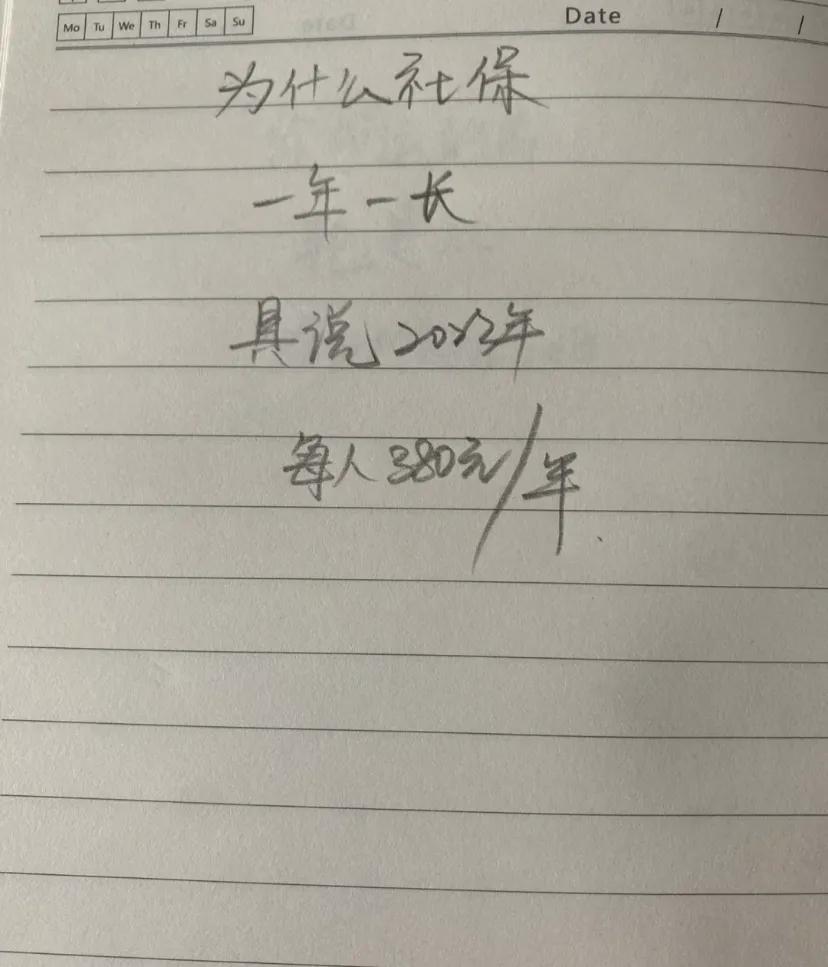 Mo Tu We Th Fr Sa Su
Date / /
为什么社保
一年一长
具说2023年
每人380元/年.